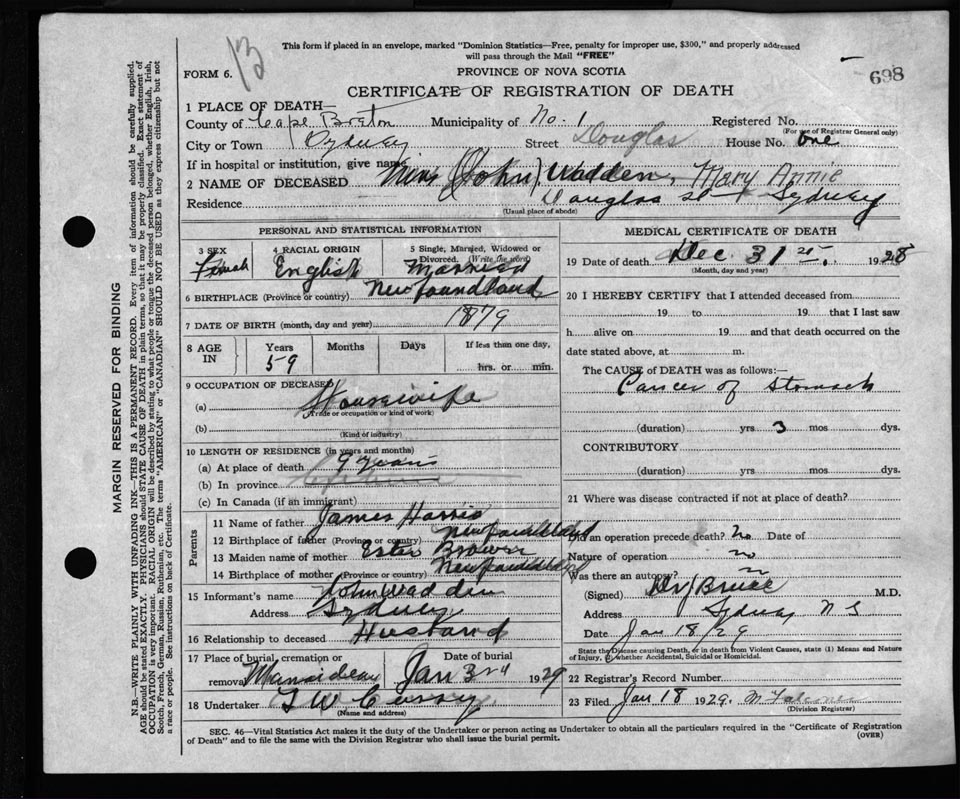 13
This form if placed in an envelope, marked "Dominion Statistics—Free, penalty for improper use, $300," and properly addressed
will pass through the Mail "FREE"
FORM 6. PROVINCE OF NOVA SCOTIA 698
CERTIFICATE OF REGISTRATION OF DEATH
1 PLACE OF DEATH—
County of Cape Breton Municipality of No. 1 Registered No.
(For use of Registrar General only)
City or Town Sydney Street Douglas House No. One
If in hospital or institution, give name
2 NAME OF DECEASED Mrs (John) Wadden, Mary Annie
Residence Douglas St Sydney
(Usual place of abode)
PERSONAL AND STATISTICAL INFORMATION
3 SEX 4 RACIAL ORIGIN 5 Single, Married, Widowed or Divorced. (Write the word)
Female English Married
6 BIRTHPLACE (Province or country) Newfoundland
7 DATE OF BIRTH (month, day and year) 1879
8 AGE IN Years Months Days If less than one day,
59 hrs. or min.
9 OCCUPATION OF DECEASED
(a) Housewife
(Trade or occupation or kind of work)
(b)
(Kind of industry)
10 LENGTH OF RESIDENCE (in years and months)
(a) At place of death 9 years
(b) In province
(c) In Canada (if an immigrant)
Parents
11 Name of father James Harris
12 Birthplace of father (Province or country) Newfoundland
13 Maiden name of mother Ester Brower
14 Birthplace of mother (Province or country) Newfoundland
15 Informant's name John Wadden
Address Sydney
16 Relationship to deceased Husband
17 Place of burial, cremation or removal Date of burial
Jan 3rd 1929
18 Undertaker
(Name and address)
MEDICAL CERTIFICATE OF DEATH
19 Date of death Dec. 31st. 1928
(Month, day and year)
20 I HEREBY CERTIFY that I attended deceased from
19 to 19 that I last saw
h alive on 19 and that death occurred on the
date stated above, at m.
The CAUSE of DEATH was as follows:—
Cancer of Stomach
(duration) yrs 3 mos dys.
CONTRIBUTORY
(duration) yrs mos dys.
21 Where was disease contracted if not at place of death?
Did an operation precede death? no Date of
Nature of operation no
Was there an autopsy?
(Signed) Dr J Bruce M.D.
Address Sydney N S
Date Jan 18/29
State the Disease causing Death, or in death from Violent Causes, state (1) Means and Nature
of Injury, (2) whether Accidental, Suicidal or Homicidal.
22 Registrar's Record Number
23 Filed Jan 18 1929.
(Division Registrar)
SEC. 46—Vital Statistics Act makes it duty of the Undertaker or person acting as Undertaker to obtain all the particulars required in the "Certificate of Registration
of Death" and to file the same with the Division Registrar who shall issue the burial permit. (OVER)
MARGIN RESERVED FOR BINDING
N.B.—WRITE PLAINLY WITH UNFADING INK—THIS IS A PERMANENT RECORD. Every item of information should be carefully supplied.
AGE should be stated EXACTLY. PHYSICIANS should STATE CAUSE OF DEATH in plain terms, so that it may be properly classified. Exact statement of
OCCUPATION is very important. RACIAL ORIGIN will be described by stating to what people or tongue the deceased person belonged, whether English, Irish,
Scotch, French, German, Russian, Ruthenian, etc. The terms "AMERICAN" or "CANADIAN" SHOULD NOT BE USED as they express citizenship but not
a race or people. See instructions on back of Certificate.